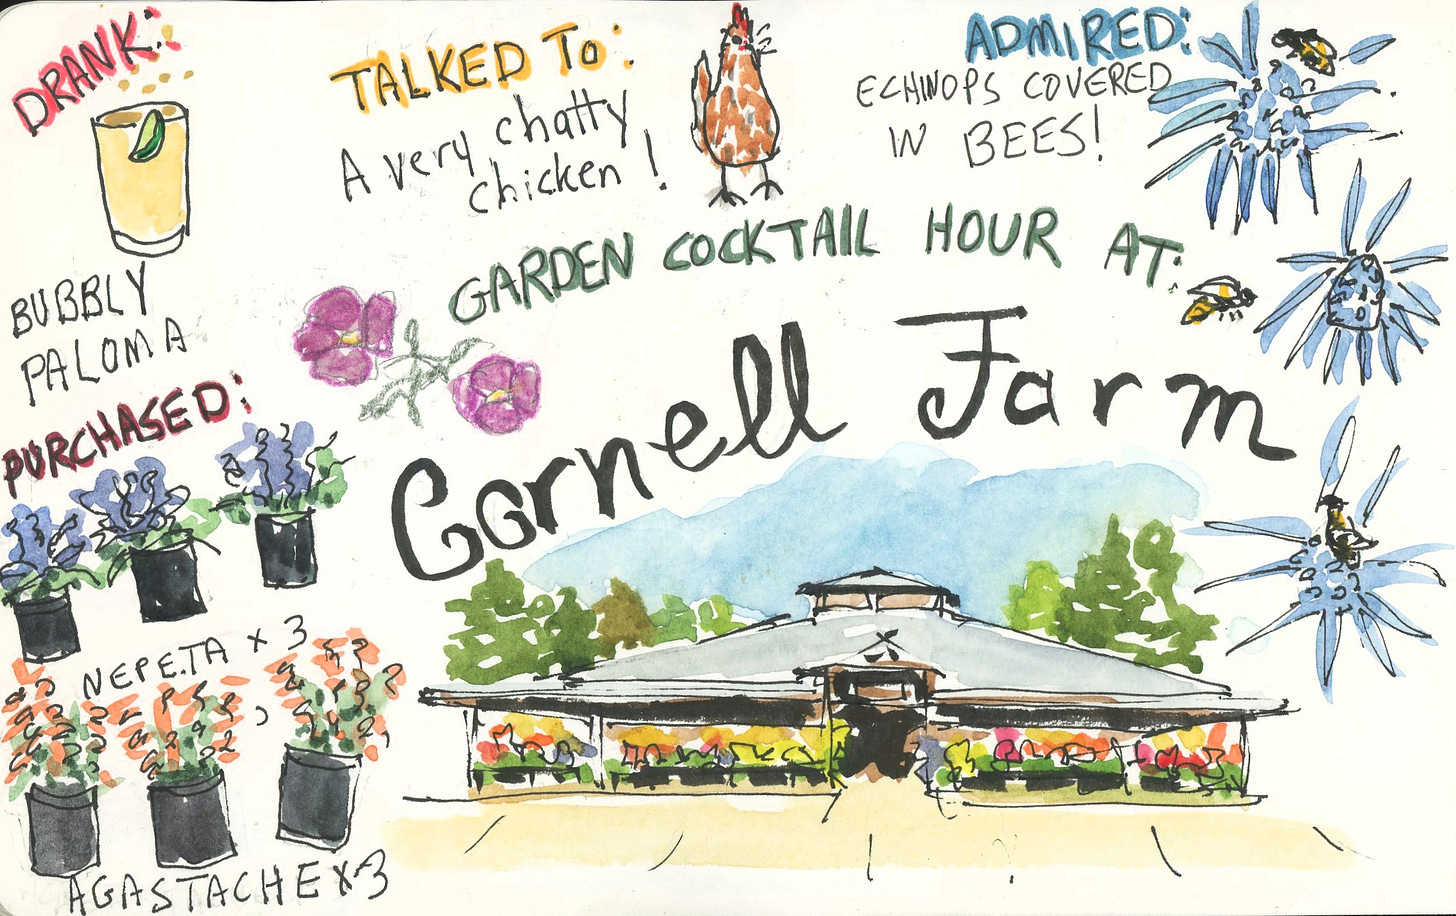 DRANK:
BUBBLY
PALOMA
TALKED TO:
A very chatty
chicken!
ADMIRED:
ECHINOPS COVERED
IN BEES!
GARDEN COCKTAIL HOUR AT:
Cornell Farm
PURCHASED:
NEPETA x 3
AGASTACHE x 3